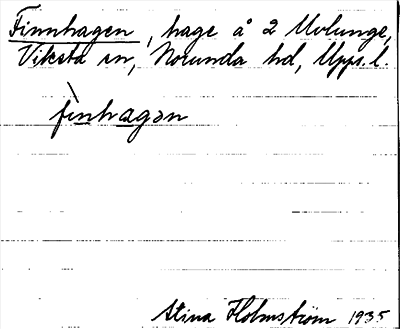 Finnhagen, hage å 2 Uvlunge,
Viksta sn, Norunda hd, Upps. l.
fìnhagən
Stina Holmström 1935